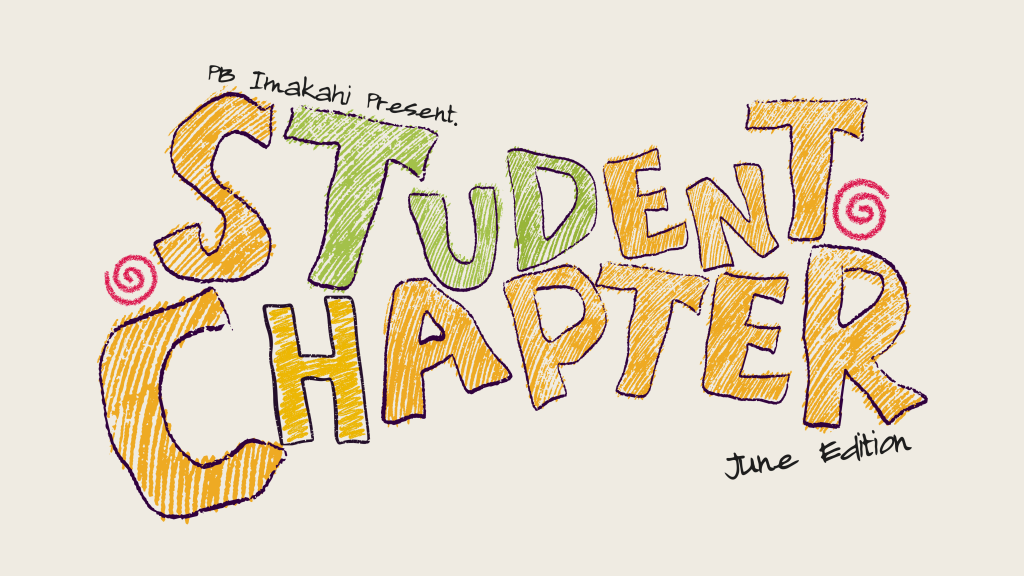 PB Imakahi Present.
STUDENT
CHAPTER
June Edition